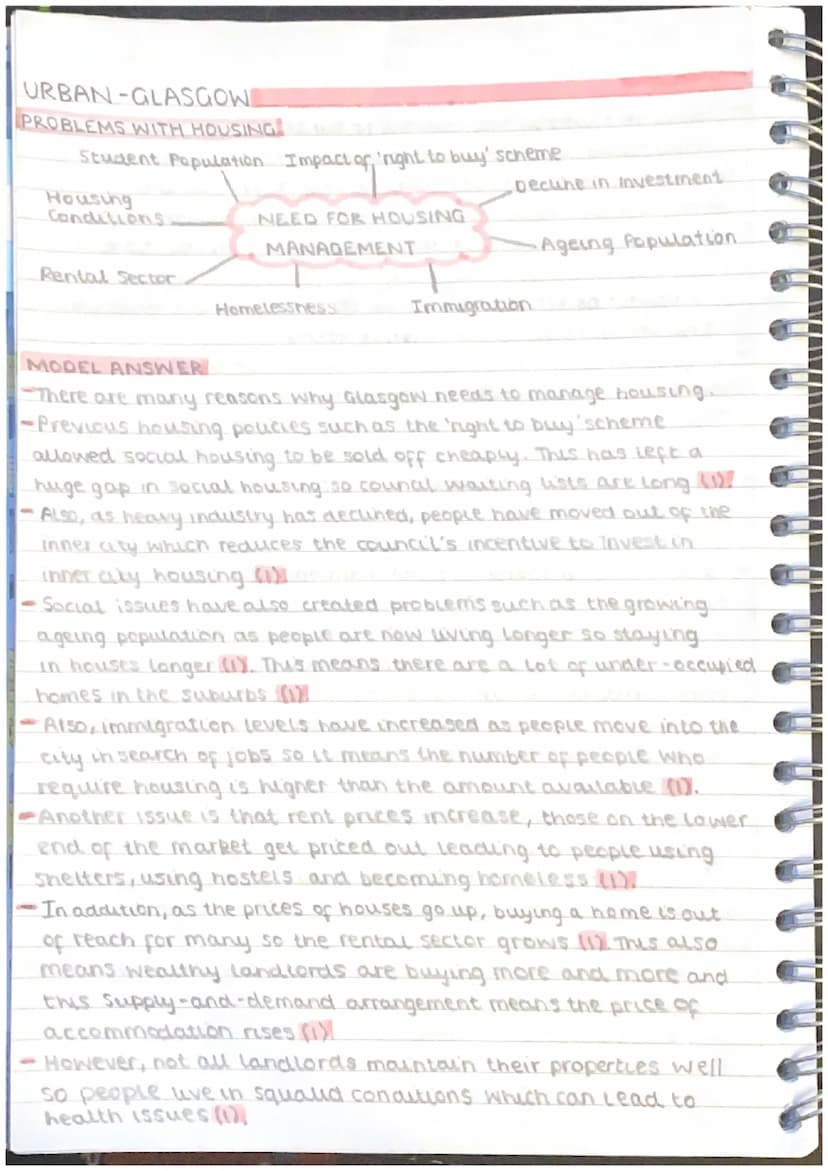 URBAN-GLASGOW
PROBLEMS WITH HOUSING
Student Population Impact of 'right to buy' scheme
Decline in Investment
Housing
Conditions
NEED FOR HOUSING
MANAGEMENT
Ageing Population
Rental Sector
Homelessness
Immigration
MODEL ANSWER
-There are many reasons why Glasgow needs to manage housing.
-Previous housing policies such as the 'right to buy' scheme
allowed social housing to be sold off cheaply. This has left a
huge gap in social housing so council waiting lists are long (1).
- Also, as heavy industry has declined, people have moved out of the
inner city which reduces the council's incentive to invest in
inner city housing (1)
- Social issues have also created problems such as the growing
ageing population as people are now living longer so staying
in houses longer (1). This means there are a lot of under-occupied
homes in the suburbs (1)
- Also, immigration levels have increased as people move into the
city in search of jobs so it means the number of people who
require housing is higher than the amount available (1).
-Another issue is that rent prices increase, those on the lower
end of the market get priced out leading to people using
shelters, using hostels and becoming homeless (1).
- In addition, as the prices of houses go up, buying a home is out
of reach for many so the rental sector grows (1). This also
means wealthy landlords are buying more and more and
this supply-and-demand arrangement means the price of
accommodation rises (1)
- However, not all landlords maintain their properties well
so people live in squalid conditions which can lead to
health issues (1).